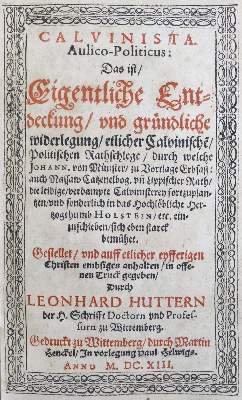 CALVINISTA
Aulico-Politicus:
Das ist/
Eigentliche Ent-
deckung/ vnd gründliche
widerlegung/ etlicher Calvinischē/
Politischen Rathschlege/ durch welche
JOHANN. von Münster/ zu Vortlage Erbsaß:
auch Nassaw Catzenelbog. vñ Lippischer Rath/
die leidige/ verdampte Calvinisterey fortzupflan-
tzen/ vnd sonderlich in das Hochlöbliche Her-
tzogthumb HOLSTEIN/ etc. ein-
zuschieben/ sich eben starck
bemühet.
Gestellet/ vnd auff etlicher eyfferigen
Christen embsiges anhalten/ in offe-
nen Truck gegeben/
Durch
LEONHARD HUTTERN
der H. Schrifft Doctorn vnd Profes-
sorn zu Wittemberg.
Gedruckt zu Wittemberg/ durch Martin
Henckel/ In vorlegung Paul Helwigs.
ANNO M. DC. XIII.